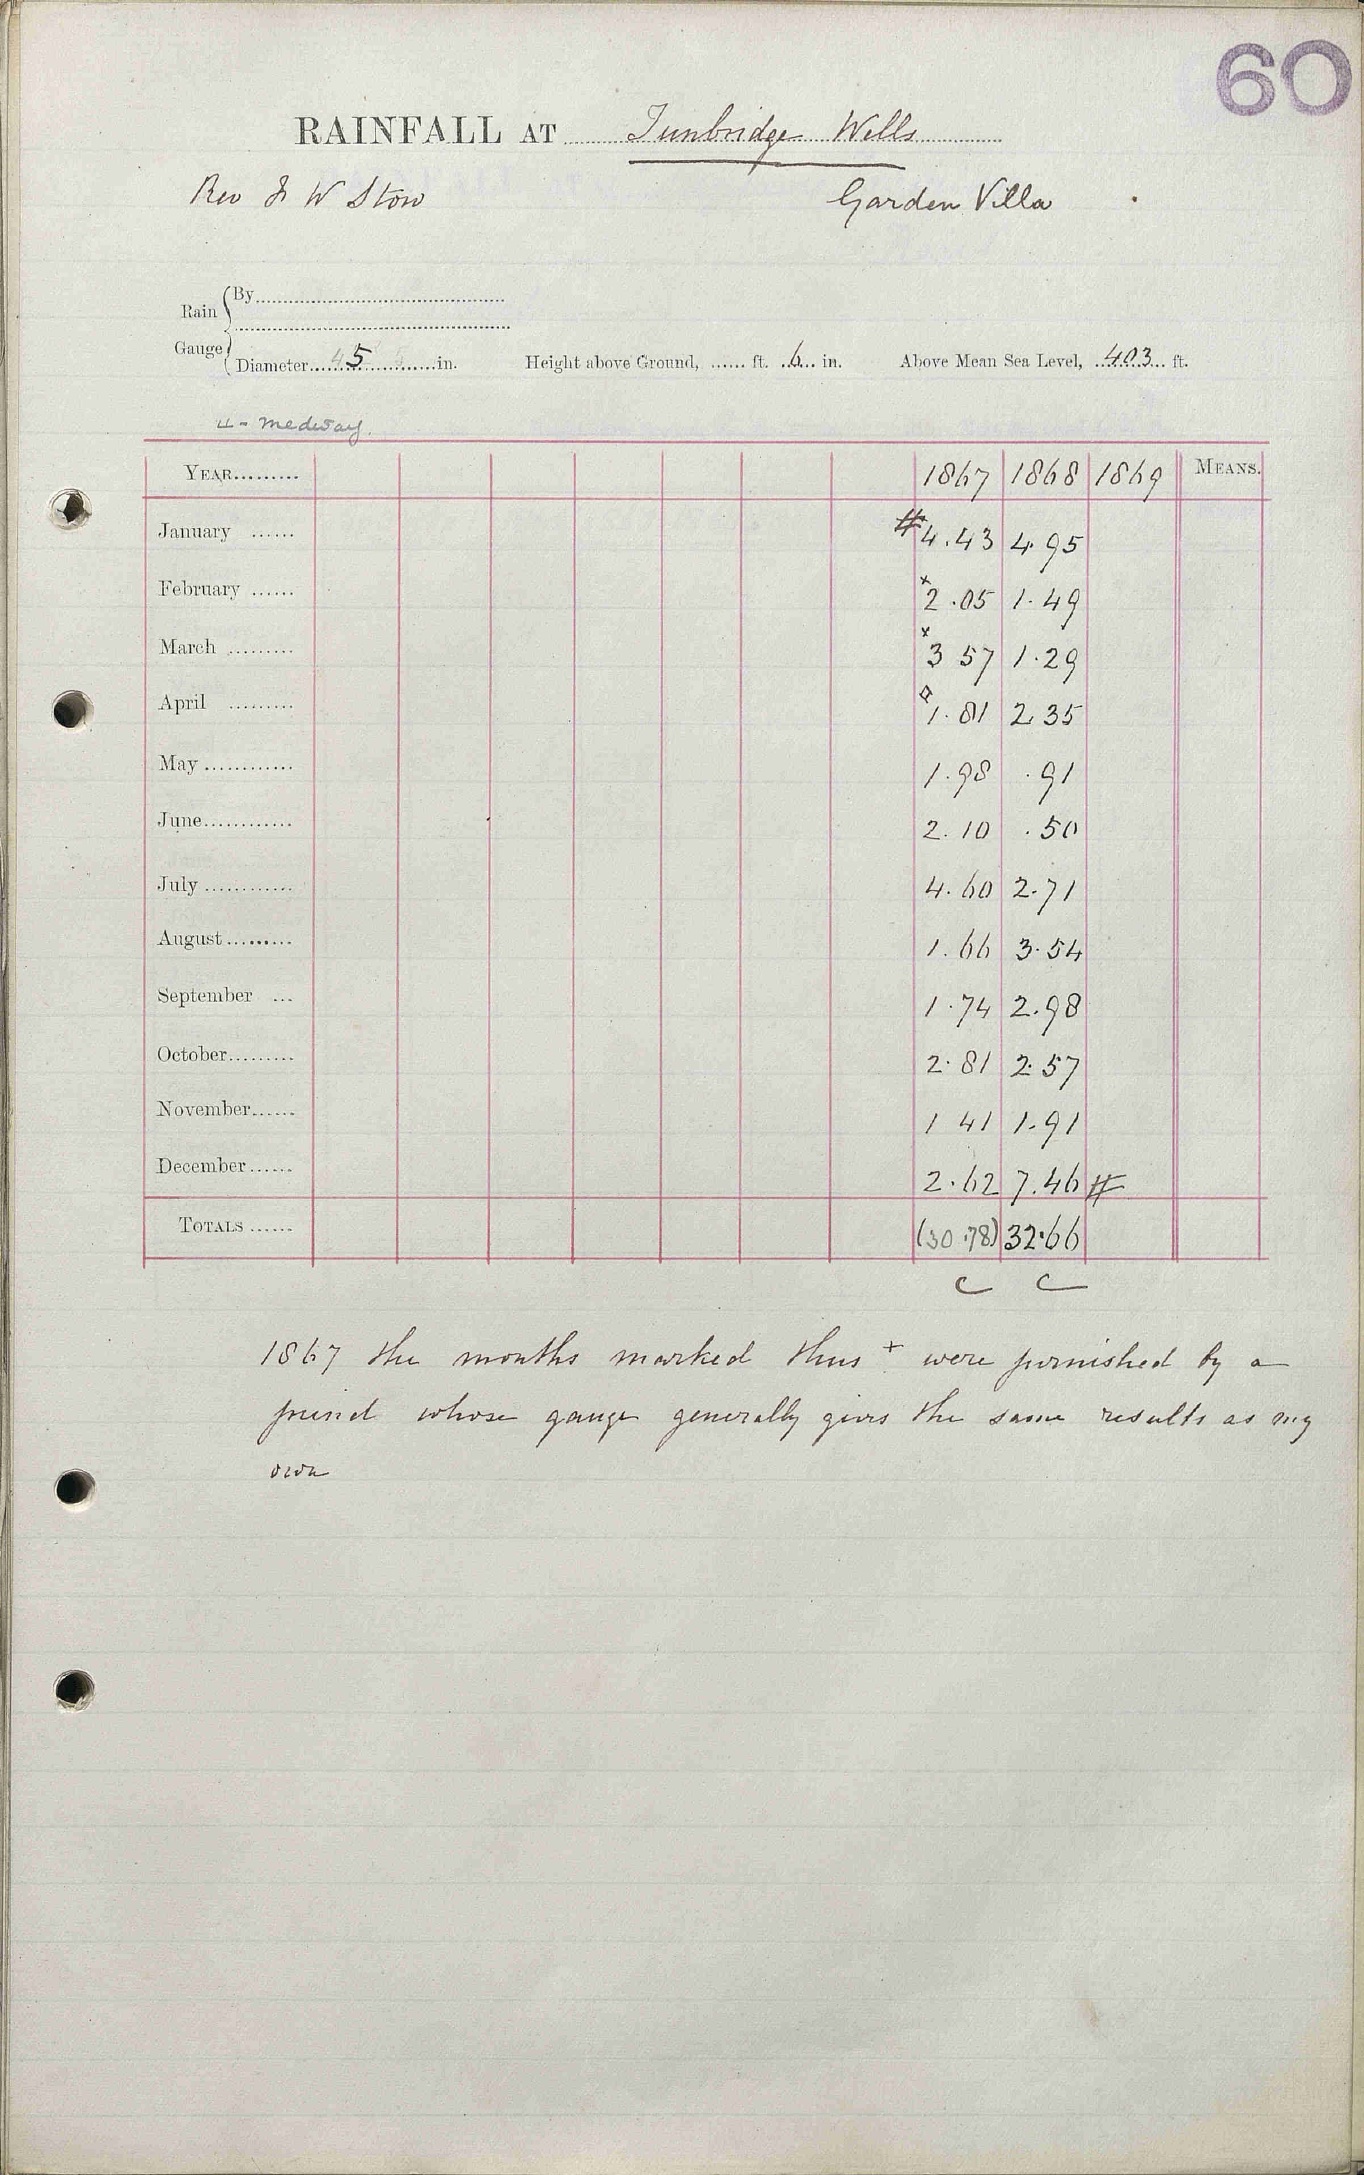 60
RAINFALL AT Tunbridge Wells
Rev F W Stow Garden Villa
Rain Gauge { By
Diameter 5 in. Height above Ground, ...... ft. 6 in. Above Mean Sea Level, 403 ft.
Medway.
YEAR......... 1867 1868 1869 MEANS.
January ...... # 4.43 4.95
February ...... x 2.05 1.49
March ......... x 3 57 1.29
April ......... 1.81 2.35
May ............ 1.98 .91
June............ 2.10 .50
July ............ 4.60 2.71
August......... 1.66 3.54
September ... 1.74 2.98
October......... 2.81 2.57
November...... 1 41 1.91
December...... 2.62 7.46 #
TOTALS ...... (30.78) 32.66
C C
1867 the months marked thus + were furnished by a
friend whose gauge generally gives the same results as my
own